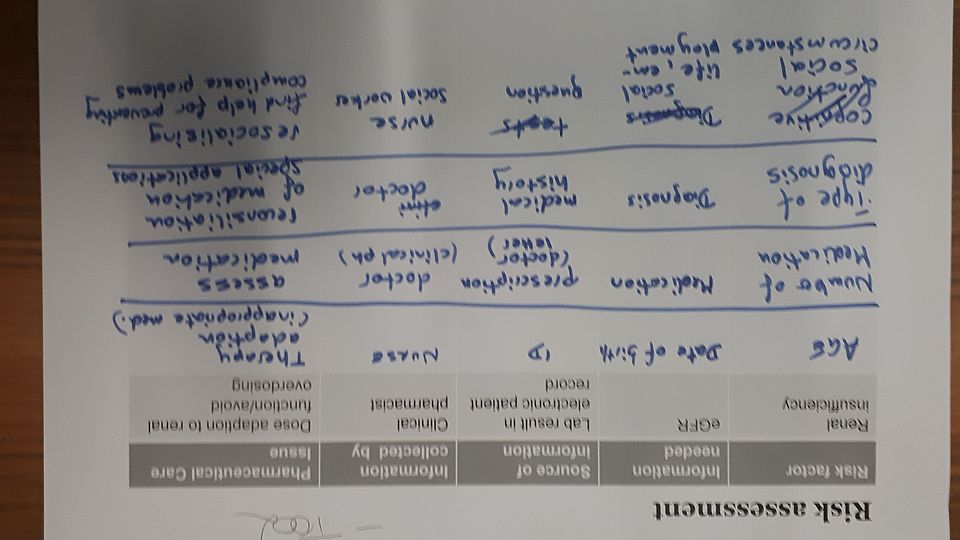 - TOOL
Risk assessment
Risk factor
Information needed
Source of information
Information collected by
Pharmaceutical Care Issue
Renal insufficiency
eGFR
Lab result in electronic patient record
Clinical pharmacist
Dose adaption to renal function/avoid overdosing
AGE
Date of birth
ID
Nurse
Therapy adaption (inappropriate med.)
Number of Medication
Medication
prescription (doctor letter)
doctor (clinical ph)
assess medication
Type of diagnosis
Diagnosis
medical history
doctor
reconsiliation of medication special applications
cognitive function social circumstances
Diagnosis social life, em-ployment
tests question
nurse social worker
resocialising find help for preventing compliance problems